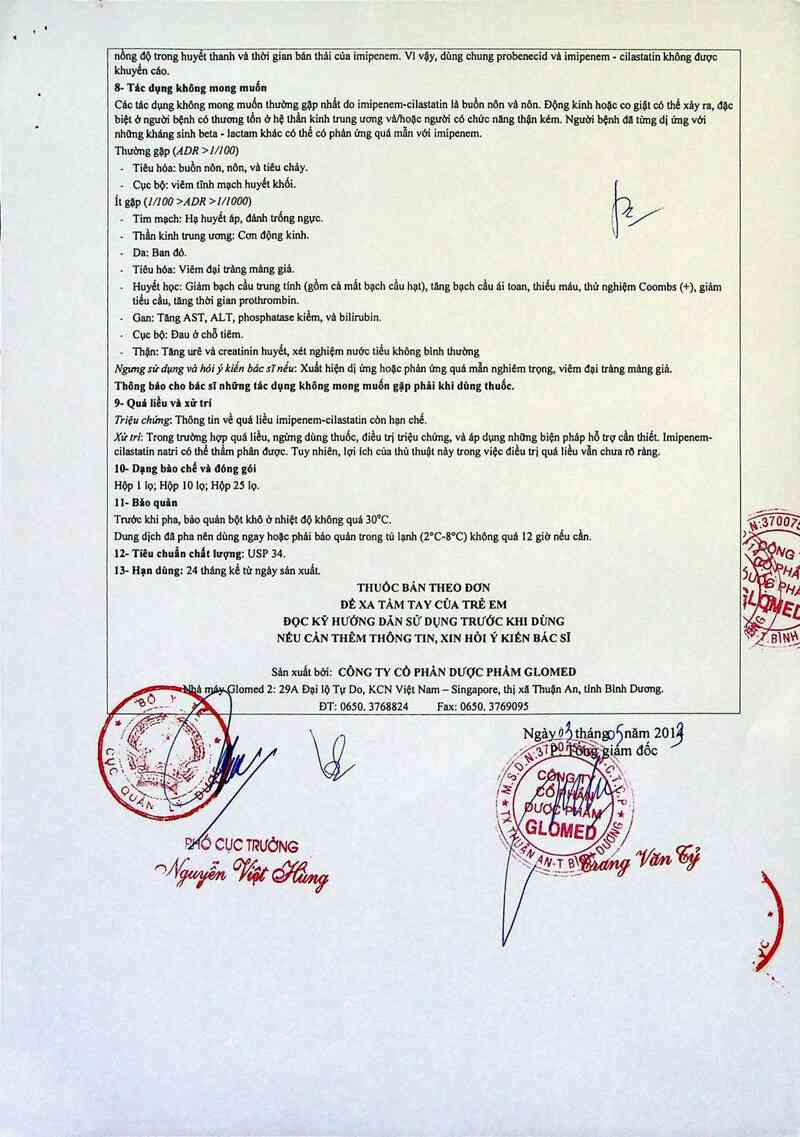 nồng độ trong huyết thanh và thời gian bán thải của imipenem. Vì vậy, dùng chung probenecid và imipenem - cilastatin không được
khuyến cáo.
8- Tác dụng không mong muốn
Các tác dụng không mong muốn thường gặp nhất do imipenem-cilastatin là buồn nôn và nôn. Động kinh hoặc co giật có thể xảy ra, đặc
biệt ở người bệnh có thương tổn ở hệ thần kinh trung ương và/hoặc người có chức năng thận kém. Người bệnh đã từng dị ứng với
những kháng sinh beta - lactam khác có thể có phản ứng quá mẫn với imipenem.
Thường gặp (ADR >1/100)
- Tiêu hóa: buồn nôn, nôn, và tiêu chảy.
- Cục bộ: viêm tĩnh mạch huyết khối.
Ít gặp (1/100 >ADR >1/1000)
- Tim mạch: Hạ huyết áp, đánh trống ngực.
- Thần kinh trung ương: Cơn động kinh.
- Da: Ban đỏ.
- Tiêu hóa: Viêm đại tràng màng giả.
- Huyết học: Giảm bạch cầu trung tính (gồm cả mất bạch cầu hạt), tăng bạch cầu ái toan, thiếu máu, thử nghiệm Coombs (+), giảm
tiểu cầu, tăng thời gian prothrombin.
- Gan: Tăng AST, ALT, phosphatase kiềm, và bilirubin.
- Cục bộ: Đau ở chỗ tiêm.
- Thận: Tăng urê và creatinin huyết, xét nghiệm nước tiểu không bình thường
Ngưng sử dụng và hỏi ý kiến bác sĩ nếu: Xuất hiện dị ứng hoặc phản ứng quá mẫn nghiêm trọng, viêm đại tràng màng giả.
Thông báo cho bác sĩ những tác dụng không mong muốn gặp phải khi dùng thuốc.
9- Quá liều và xử trí
Triệu chứng: Thông tin về quá liều imipenem-cilastatin còn hạn chế.
Xử trí: Trong trường hợp quá liều, ngừng dùng thuốc, điều trị triệu chứng, và áp dụng những biện pháp hỗ trợ cần thiết. Imipenem-
cilastatin natri có thể thẩm phân được. Tuy nhiên, lợi ích của thủ thuật này trong việc điều trị quá liều vẫn chưa rõ ràng.
10- Dạng bào chế và đóng gói
Hộp 1 lọ; Hộp 10 lọ; Hộp 25 lọ.
11- Bảo quản
Trước khi pha, bảo quản bột khô ở nhiệt độ không quá 30°C.
Dung dịch đã pha nên dùng ngay hoặc phải bảo quản trong tủ lạnh (2°C-8°C) không quá 12 giờ nếu cần.
12- Tiêu chuẩn chất lượng: USP 34.
13- Hạn dùng: 24 tháng kể từ ngày sản xuất.
THUỐC BÁN THEO ĐƠN
ĐỂ XA TẦM TAY CỦA TRẺ EM
ĐỌC KỸ HƯỚNG DẪN SỬ DỤNG TRƯỚC KHI DÙNG
NẾU CẦN THÊM THÔNG TIN, XIN HỎI Ý KIẾN BÁC SĨ
Sản xuất bởi: CÔNG TY CỔ PHẦN DƯỢC PHẨM GLOMED
Nhà máy Glomed 2: 29A Đại lộ Tự Do, KCN Việt Nam – Singapore, thị xã Thuận An, tỉnh Bình Dương.
ĐT: 0650. 3768824 Fax: 0650. 3769095
Ngày 03 tháng 05 năm 2013
P. Tổng giám đốc
BỘ Y TẾ
CỤC QUẢN LÝ DƯỢC
CÔNG TY
CỔ PHẦN
DƯỢC PHẨM
GLOMED
TX THUẬN AN-T BÌNH DƯƠNG
PHÓ CỤC TRƯỞNG
Nguyễn Việt Hùng
Trang Văn Tỷ